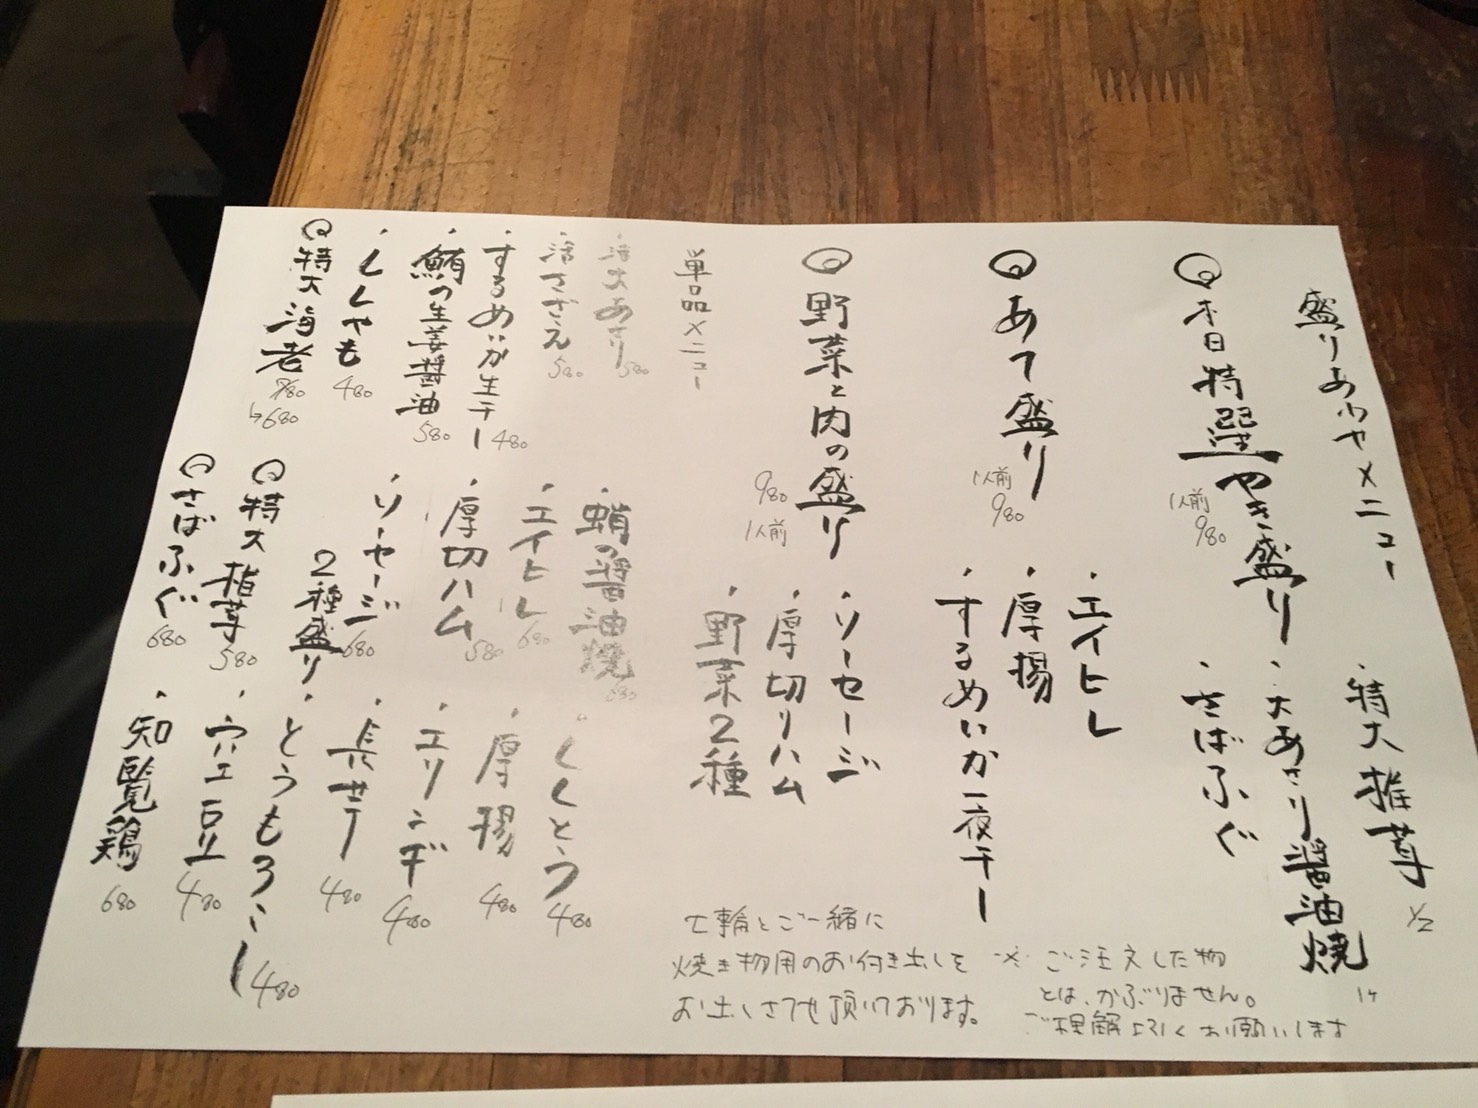 盛りあわせメニュー
本日特選やき盛り
1人前
980
・特大椎茸
1/2
・大あさり醤油焼
1ケ
・さばふぐ
あて盛り
1人前
980
・エイヒレ
・厚揚
・するめいか一夜干し
野菜と肉の盛り
980
1人前
・ソーセージ
・厚切りハム
・野菜2種
単品メニュー
・活大あさり
580
・活さざえ
580
・するめいか生干し
480
・鮪の生姜醤油
580
・ししゃも
480
特大海老
780
↳680
・蛸の醤油焼
680
・エイヒレ
680
・厚切ハム
580
・ソーセージ
2種盛り
680
特大椎茸
580
さばふぐ
680
・ししとう
480
・厚揚
480
・エリンギ
480
・長芋
480
・とうもろこし
480
・穴エ豆
480
・知覧鶏
680
七輪とご一緒に
焼き物用のお付き出しを
お出しさせて頂いております。
※ご注文した物
とは、かぶりません。
ご理解よろしくお願いします